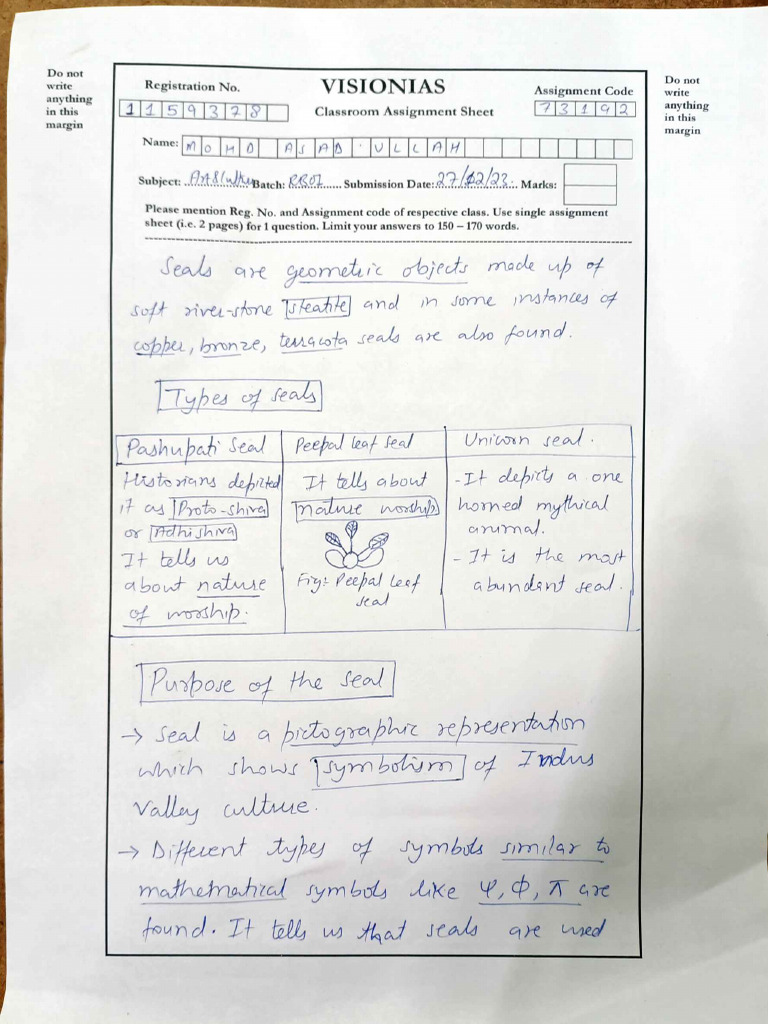 Do not
write
anything
in this
margin
Registration No.
1159378
VISIONIAS
Classroom Assignment Sheet
Assignment Code
73192
Do not
write
anything
in this
margin
Name: MOHD ASAD ULLAH
Subject: Batch: RR01 Submission Date: 27/12/23 Marks:
Please mention Reg. No. and Assignment code of respective class. Use single assignment
sheet (i.e. 2 pages) for 1 question. Limit your answers to 150 – 170 words.
Seals are geometric objects made up of
soft river-stone steatite and in some instances of
copper, bronze, terracota seals are also found.
Types of seals
Pashupati Seal
Historians depicted
it as Proto-shiva
or Adhishiva
It tells us
about nature
of worship.
Peepal leaf seal
It tells about
nature worship
Fig:- Peepal leaf
seal
Unicorn seal.
- It depicts a one
horned mythical
animal.
- It is the most
abundant seal.
Purpose of the seal
→ Seal is a pictographic representation
which shows symbolism of Indus
Valley culture.
→ Different types of symbols similar to
mathematical symbols like φ, Φ, π are
found. It tells us that seals are used